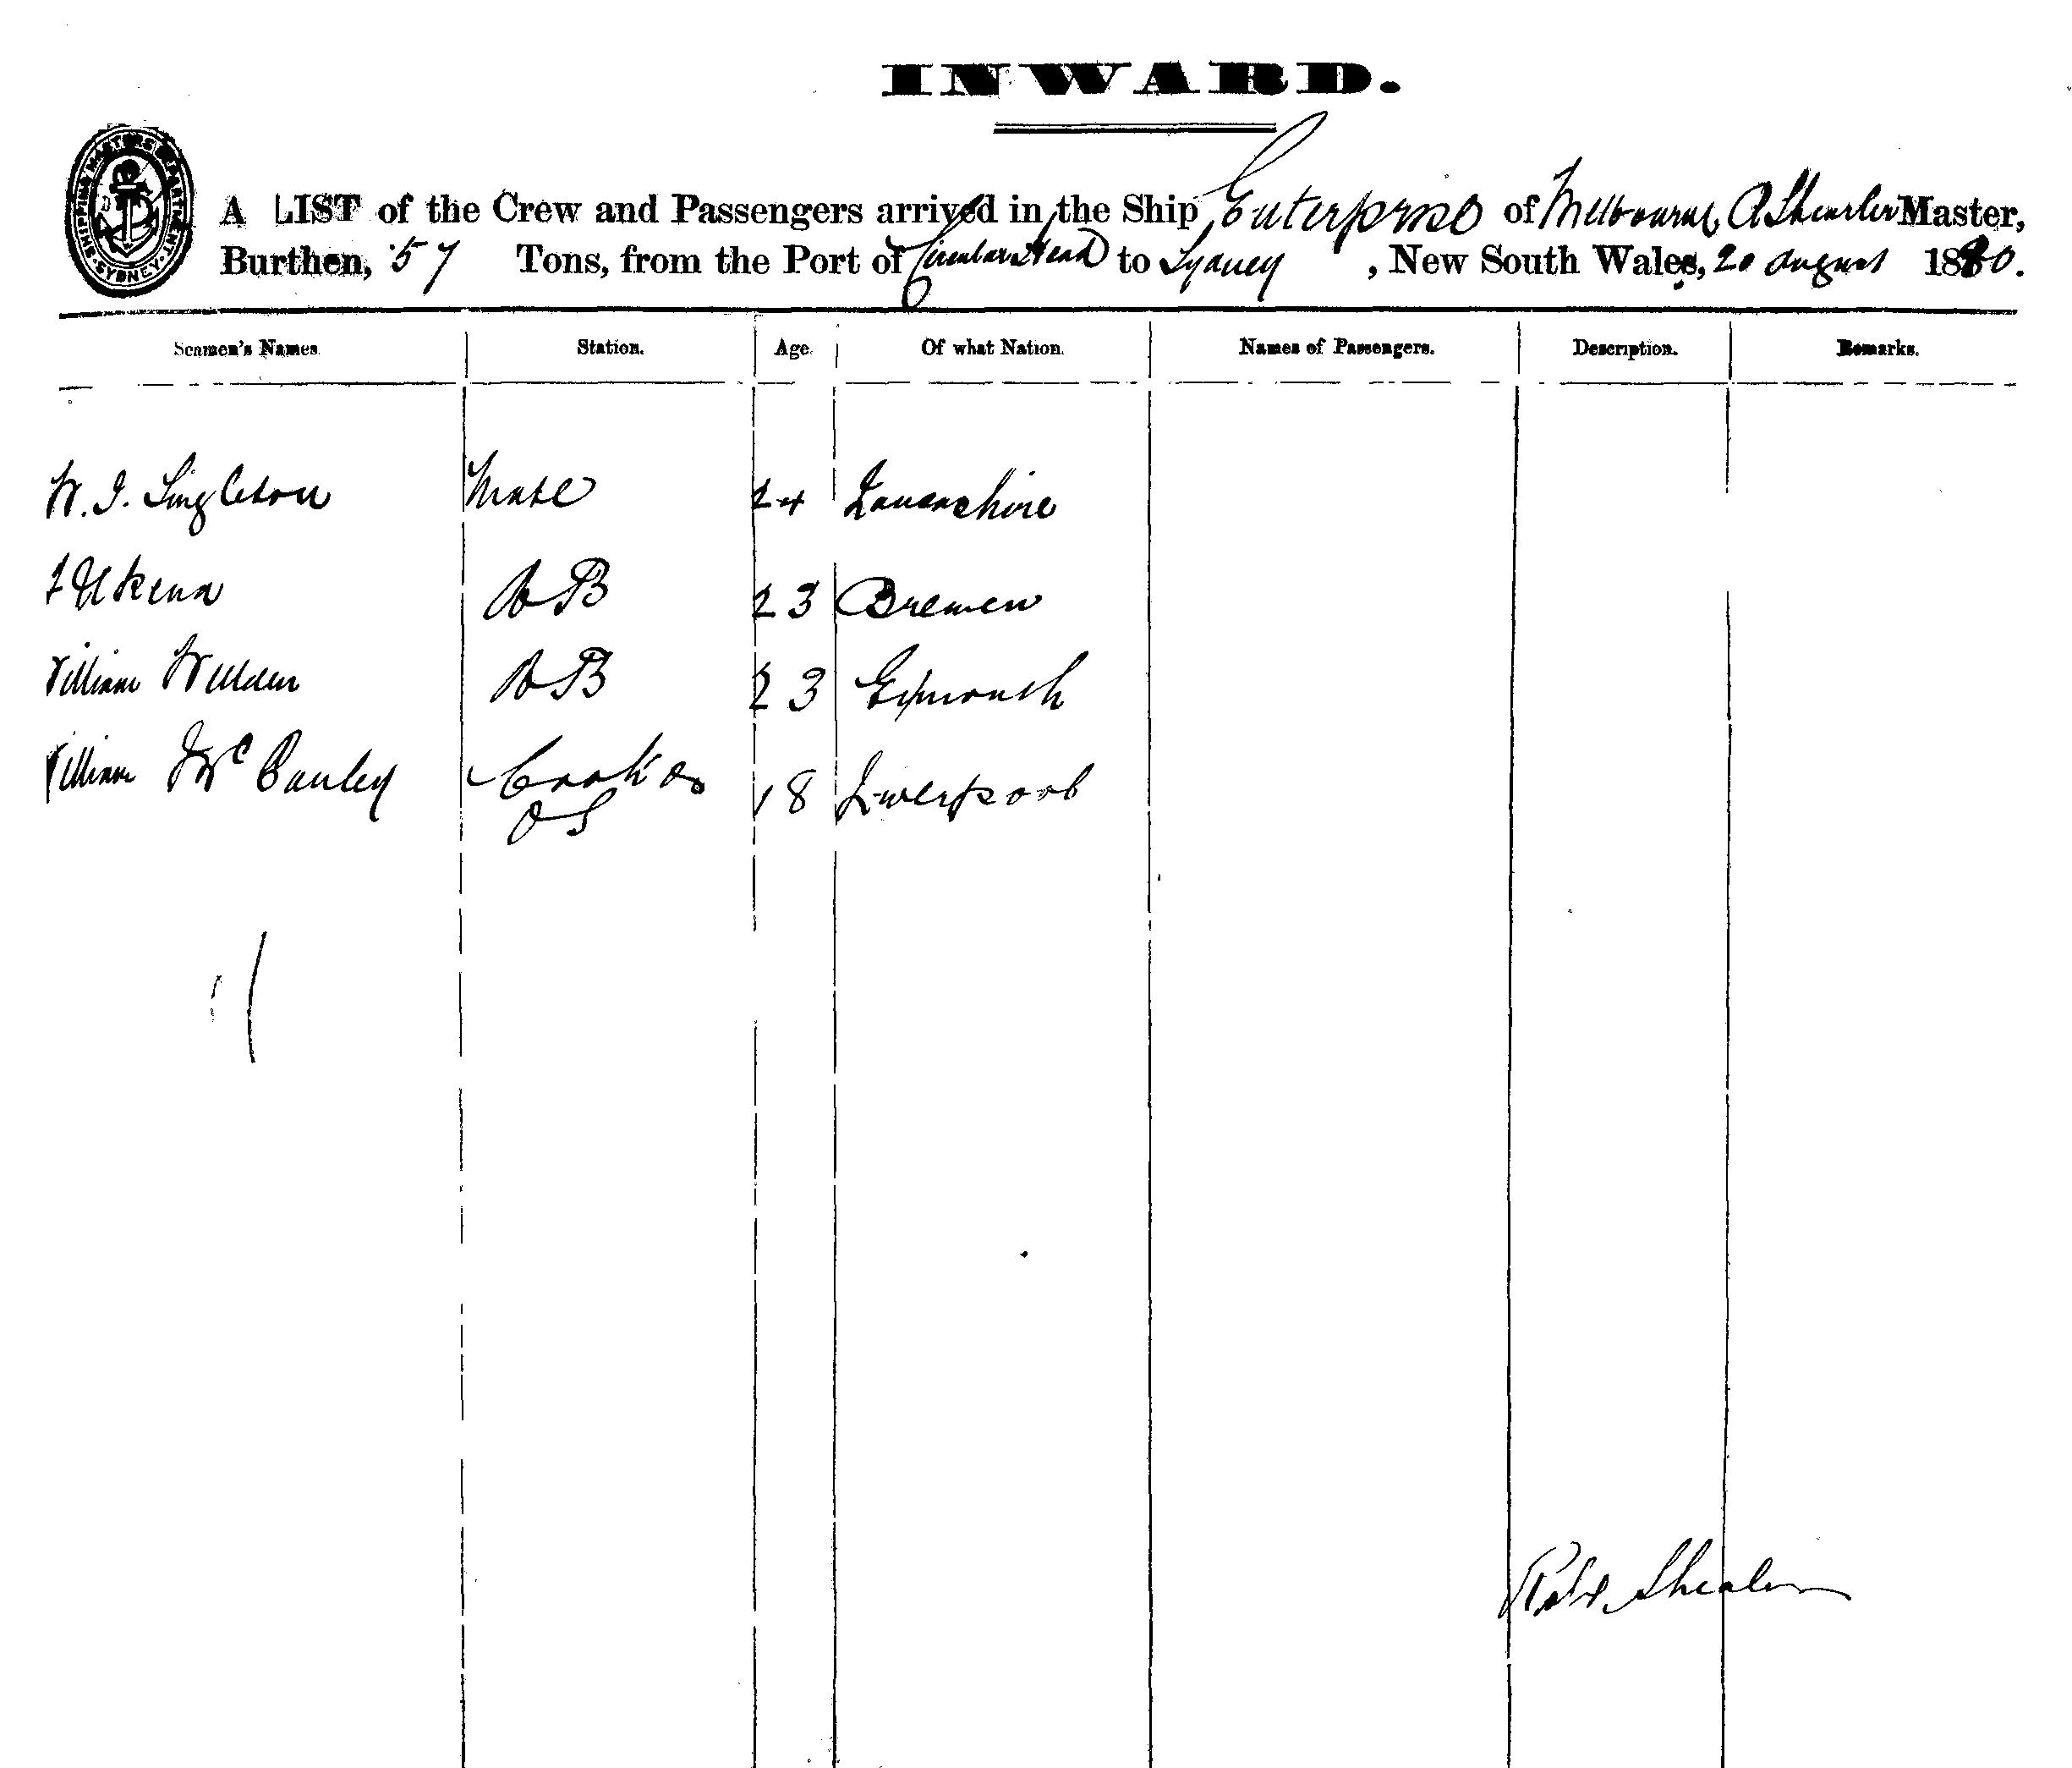 INWARD.
SHIPPING MASTERS DEPARTMENT SYDNEY
A LIST of the Crew and Passengers arrived in the Ship Enterprise of Melbourne, Master,
Burthen, 57 Tons, from the Port of Circular Head to Sydney, New South Wales, 20 August 1880.
Seamen's Names. Station. Age. Of what Nation. Names of Passengers. Description. Remarks.
W. J. Singleton Mate 24 Lancashire
AB 23 Bremen
William AB 23 Exmouth
William McCauley Cook &
OS 18 Liverpool
Robt